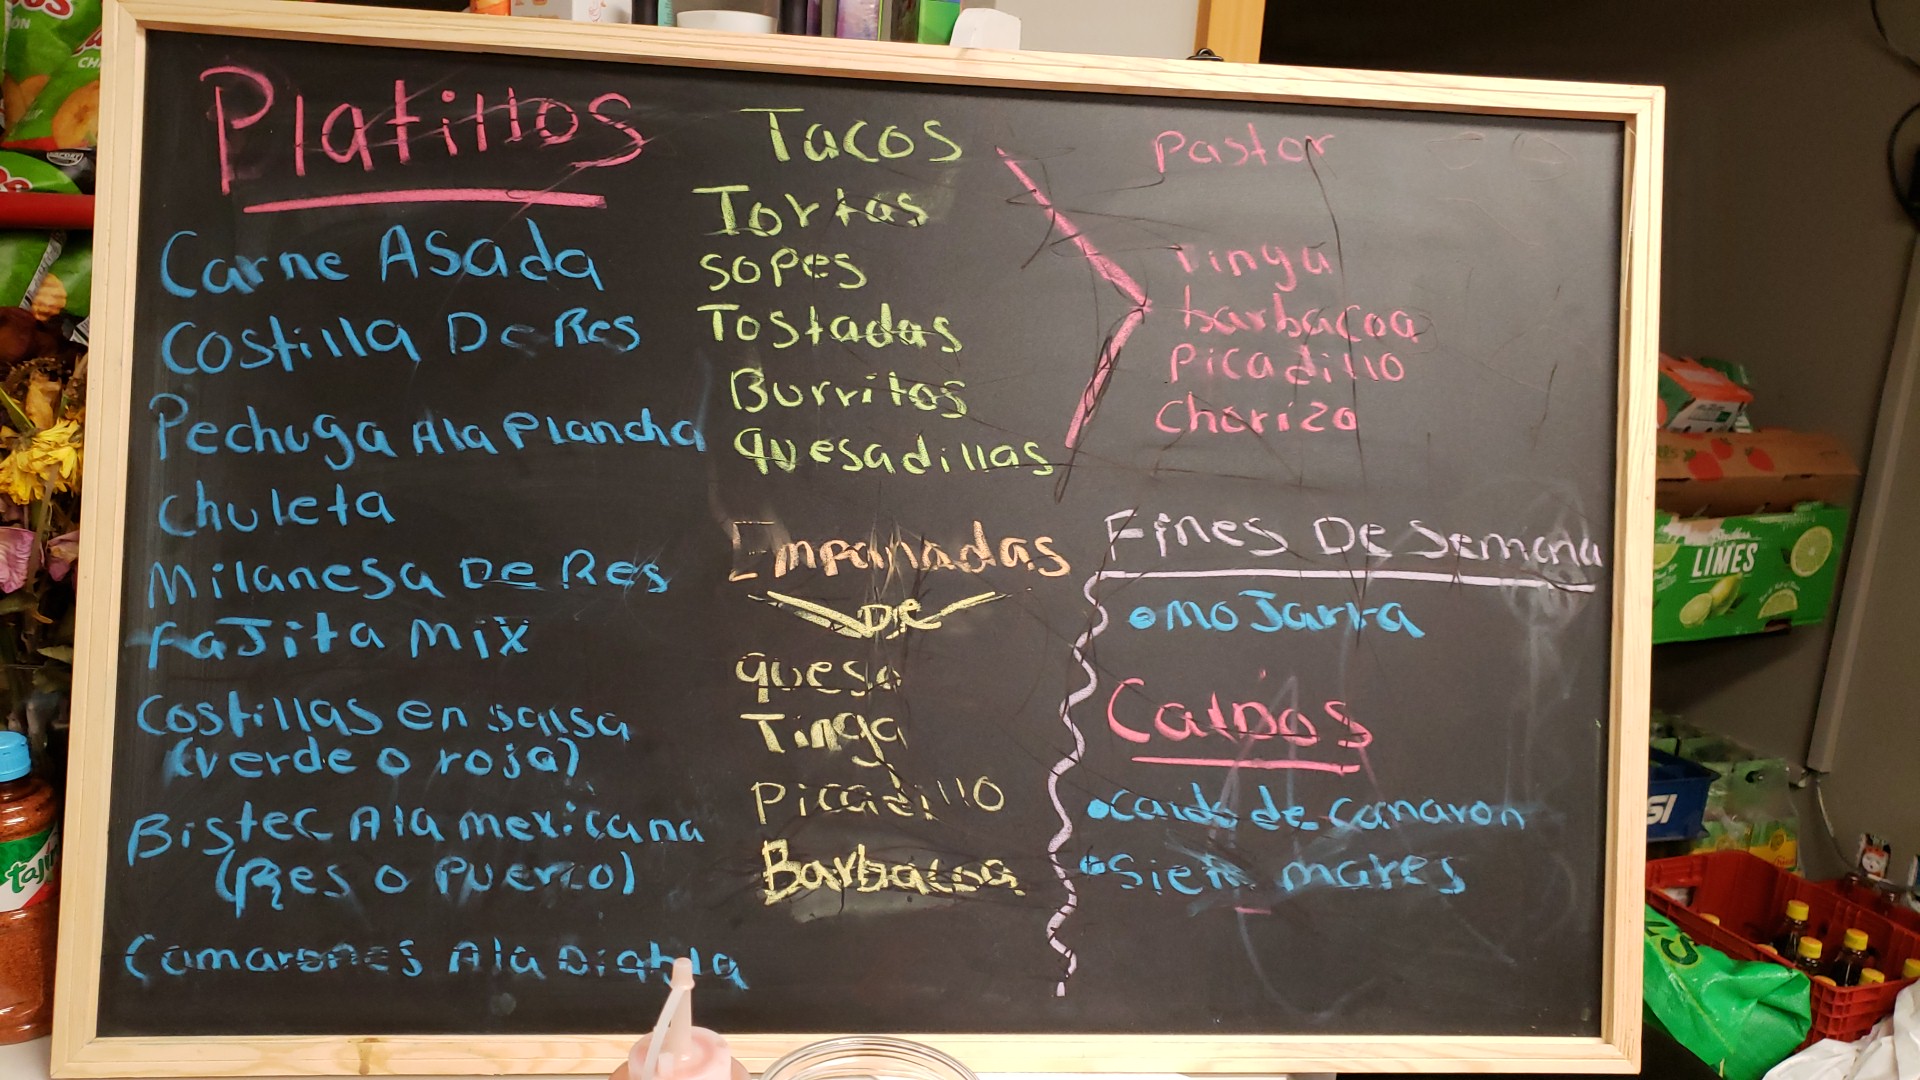 Platillos
Carne Asada
Costilla De Res
Pechuga Ala Plancha
Chuleta
Milanesa De Res
FaJita Mix
Costillas en salsa
(verde o roja)
Bistec Ala mexicana
(Res o Puerco)
Camarones Ala Diabla
Tacos
Tortas
SOPES
Tostadas
Burritos
quesadillas
Pastor
Tinga
barbacoa
Picadillo
Chorizo
Empanadas
De
queso
Tinga
Picadillo
Barbacoa
Fines De Semana
•moJarra
Caldos
•caldo de camaron
•siete mares
LIMES
tajín